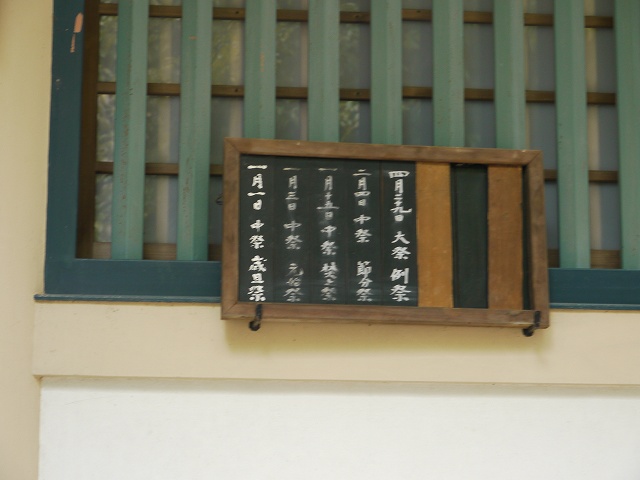 一月一日 中祭 歳旦祭
一月三日 中祭 元始祭
一月十五日 中祭 焚上祭
二月四日 中祭 節分祭
四月二九日 大祭 例祭